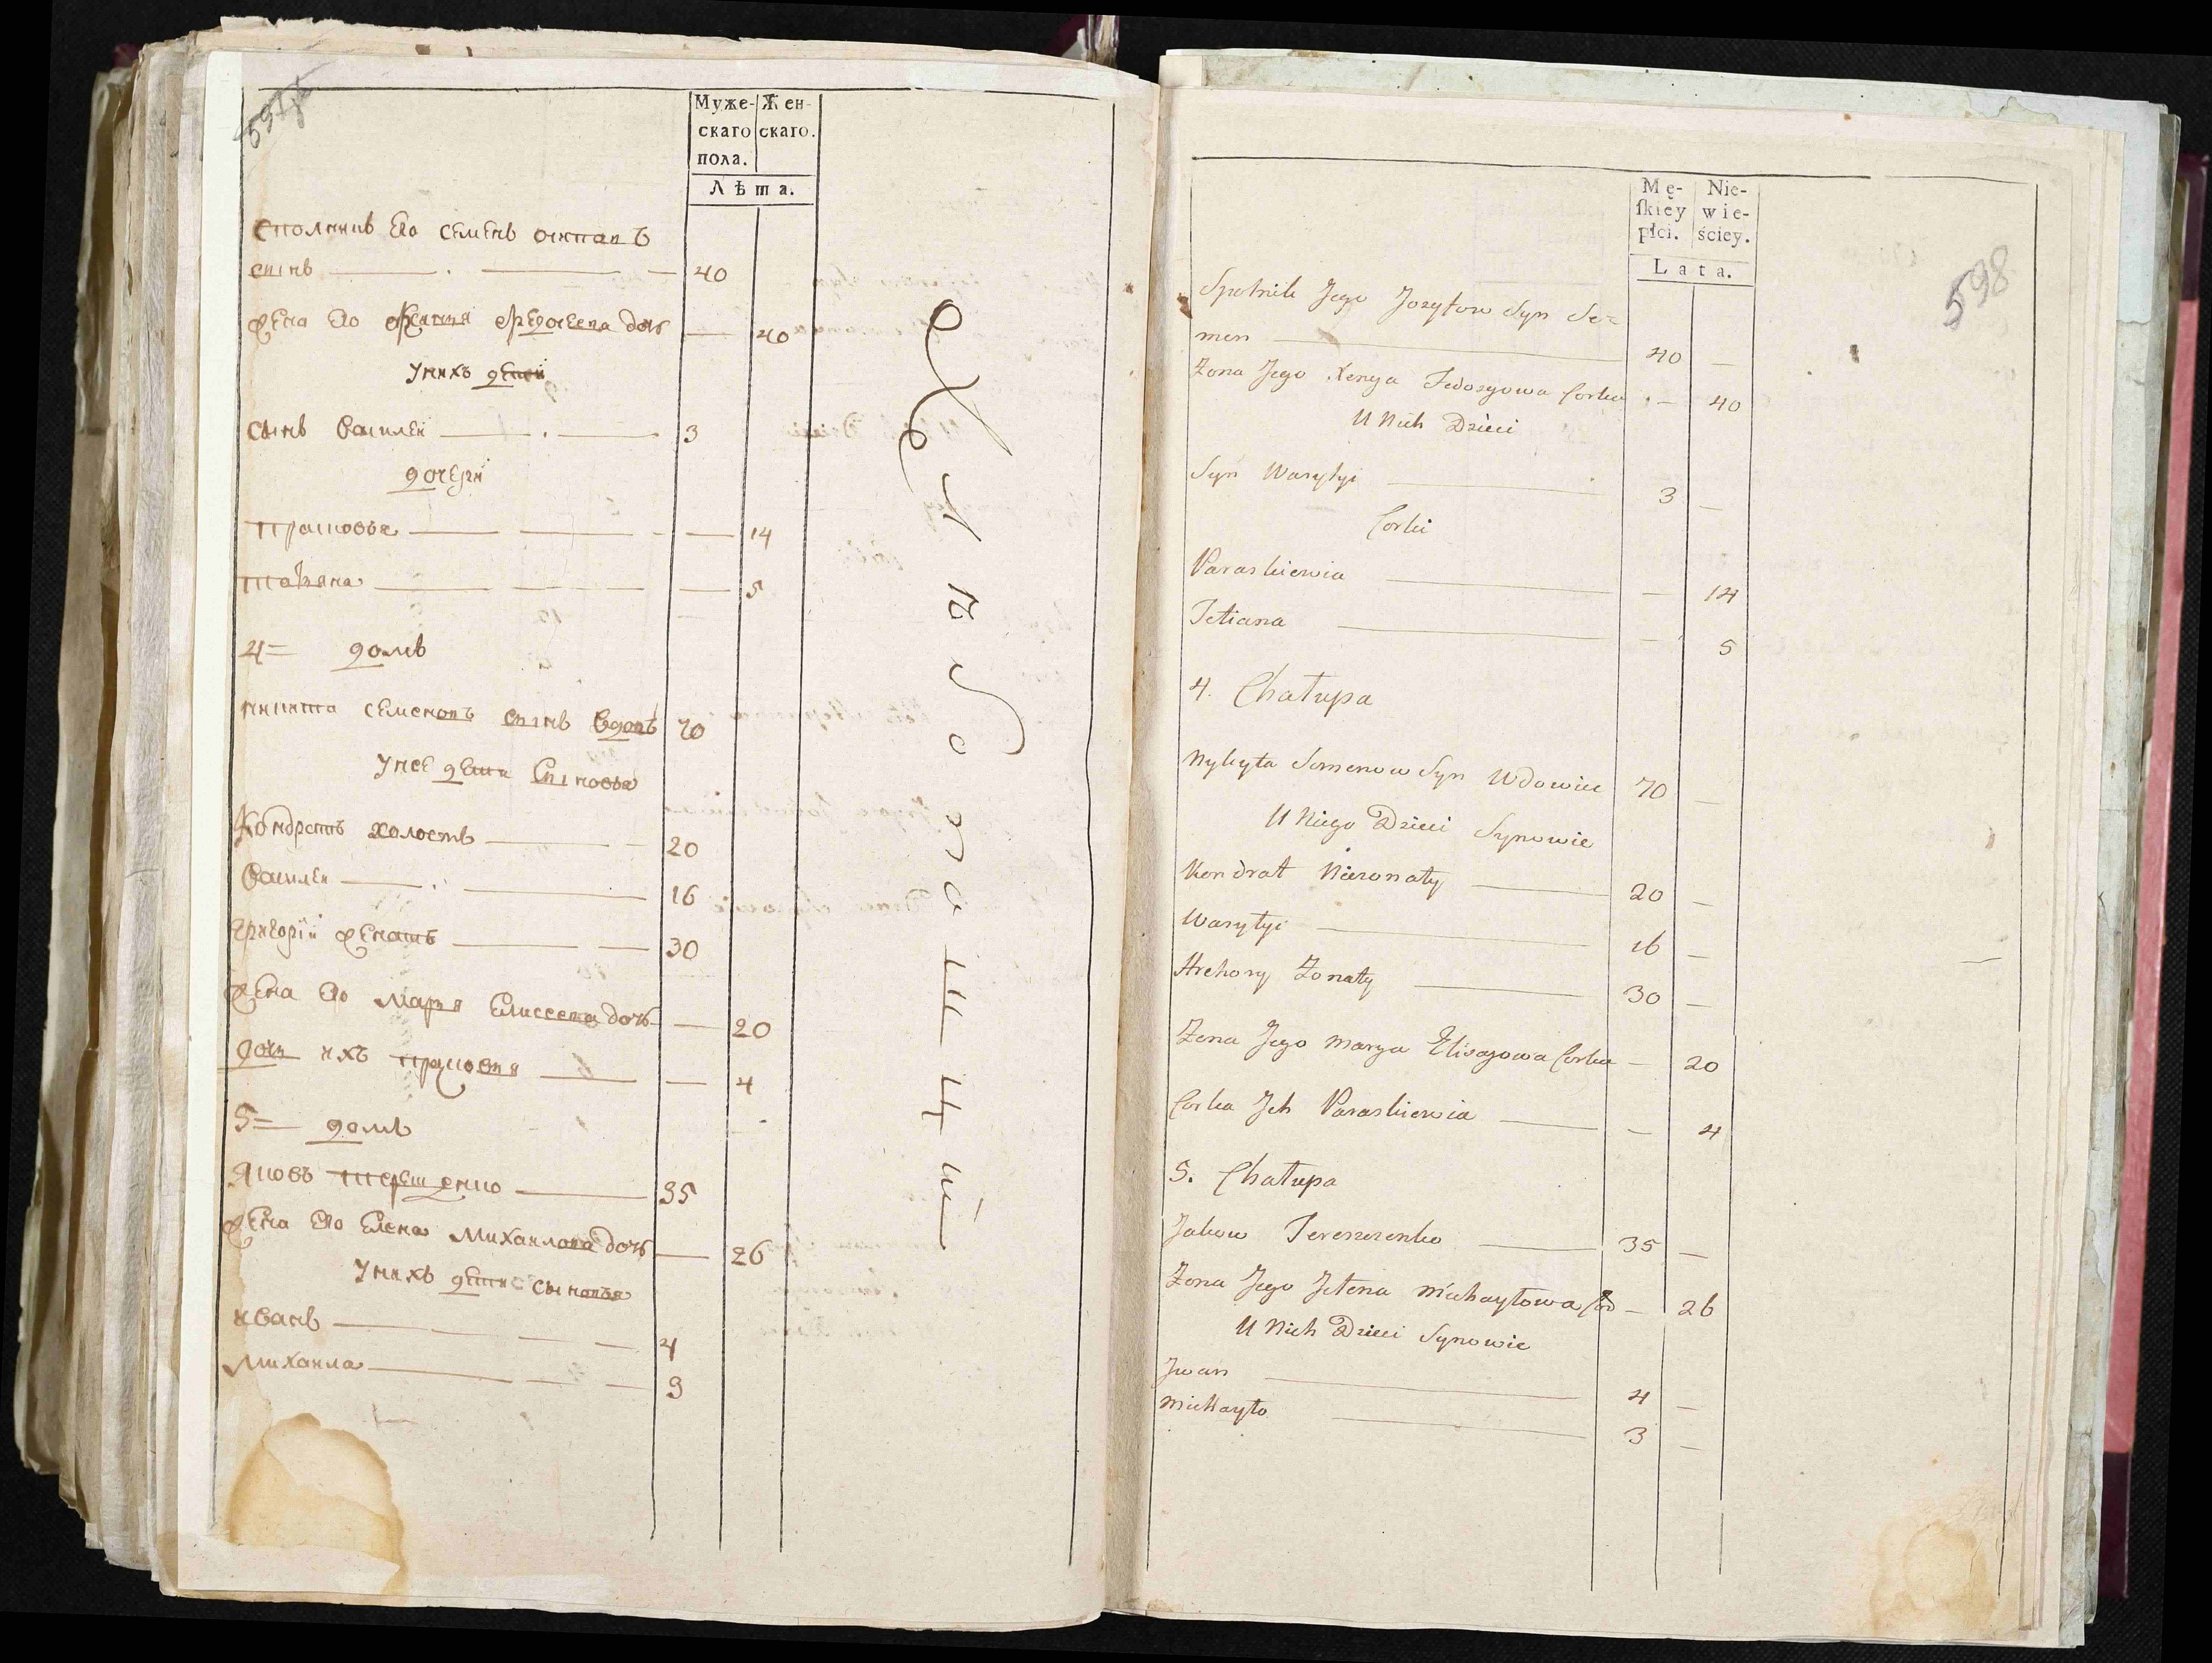 Муже-
скаго
пола.
Жен-
скаго.
Лѣта.
сполникъ Его семенъ
сынъ 40
жена Его Ксения дочь 40
У нихъ дети
сынъ василеи 3
дочери
прасковья 14
татьяна 5
4= домъ
никита семеновъ сынъ вдовъ 70
У нее дети сыновья
Кондратъ холостъ 20
василеи 16
григорïи женатъ 30
жена Его марья Елисеева дочь 20
дочь ихъ прасковья 4
5= домъ
яковъ терещенко 35
жена Его Елена михаилова дочь 26
У нихъ дети сыновья
иванъ 4
михаила 3
598
Mę-
ſkiey
płci.
Nie-
wie-
ściey.
Lata.
Spolnik Jego Jozyfow Syn Se=
men 40 —
Żona Jego Xenya Fedosyowa Corka — 40
U Nich Dzieci
Syn Wasylyi 3 —
Corki
Paraskiewia — 14
Tetiana — 5
4. Chałupa
Nykyta Semenow Syn Wdowiec 70 —
U Niego Dzieci Synowie
Kondrat Nieżonaty 20 —
Wasylyi 16 —
Hrehory Żonaty 30 —
Żona Jego Marya Elisayowa Corka — 20
Corka Jch Paraskiewia — 4
5. Chałupa
Jakow Tereszczenko 35 —
Żona Jego Jelena Michayłowa Cor — 26
U Nich Dzieci Synowie
Jwan 4 —
Michayło 3 —